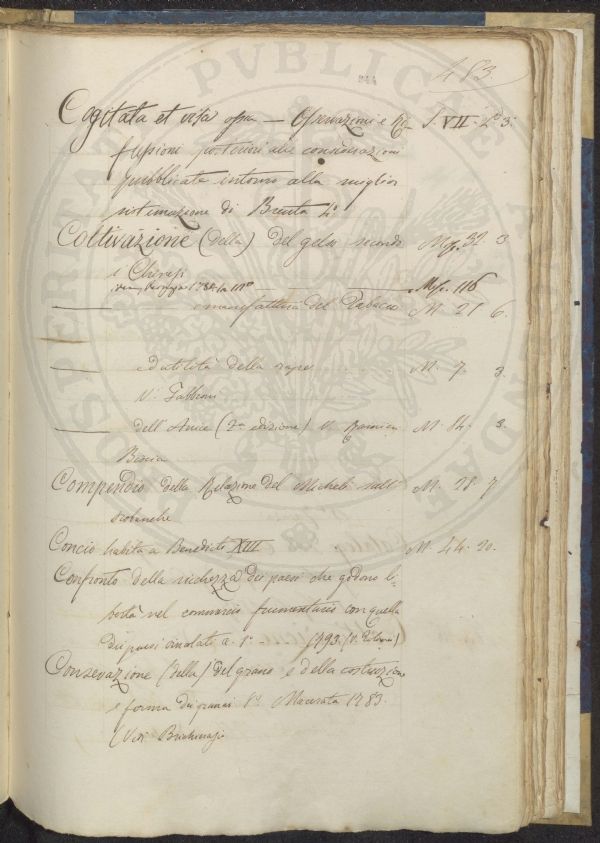 244
483.
Cogitata et visa opra — Osservazioni e Ri- S. VII. Lo 3.
flessioni posteriori alle considerazioni
pubblicate intorno alla miglior
sistemazione di Brenta 4o
Coltivazione (della) del gelso secondo Ms. 32. 3
i Chinesi
Ms. 116
— e manifattura del Tabacco M. 21 6.
— ed utilità della rapa M. 7. 3.
V. Fabbroni
— dell'Anice (2a edizione) V. M. 84. 3.
Compendio della Relazione del Micheli sull' M. 28. 7
orobanche
Concio habita a Benedicto XIII M. 44. 20.
Confronto della ricchezza dei paesi che godono li-
bertà nel commercio frumentario con quella
dei paesi vincolati 1793. (V.
Conservazione (della) del grano e della costruzione
e forma dei granai Macerata 1783.
(Vedi
PVBLICAE